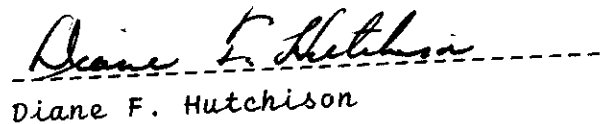 Diane F. Hutchison
Diane F. Hutchison